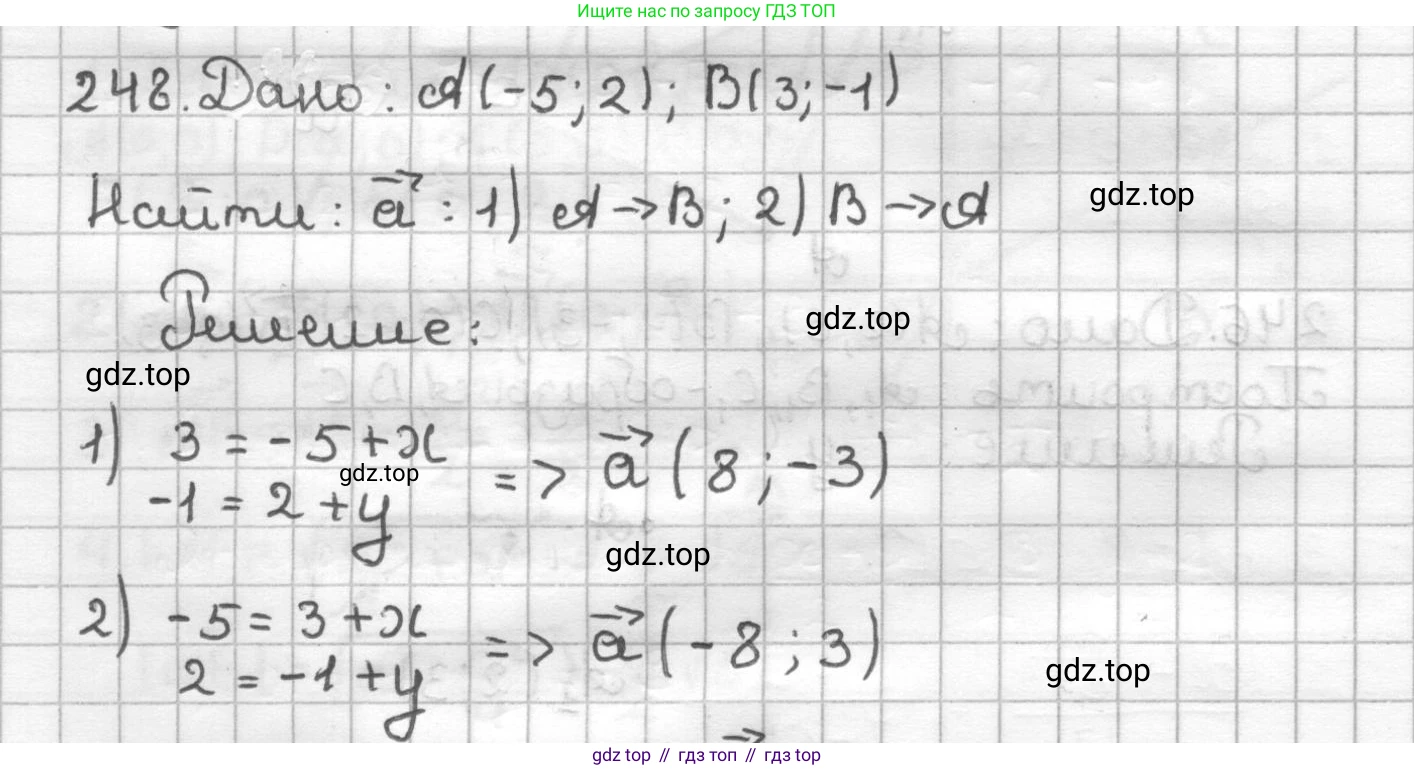 Ищите нас по запросу ГДЗ ТОП
248. Дано: A(-5; 2); B(3; -1)
Найти: a⃗: 1) A → B; 2) B → A
gdz.top
Решение:
gdz.top
gdz.top
1) 3 = -5 + x
-1 = 2 + y
=> a⃗ (8; -3)
gdz.top
gdz.top
2) -5 = 3 + x
2 = -1 + y
=> a⃗ (-8; 3)
gdz.top
gdz top // гдз топ // gdz top